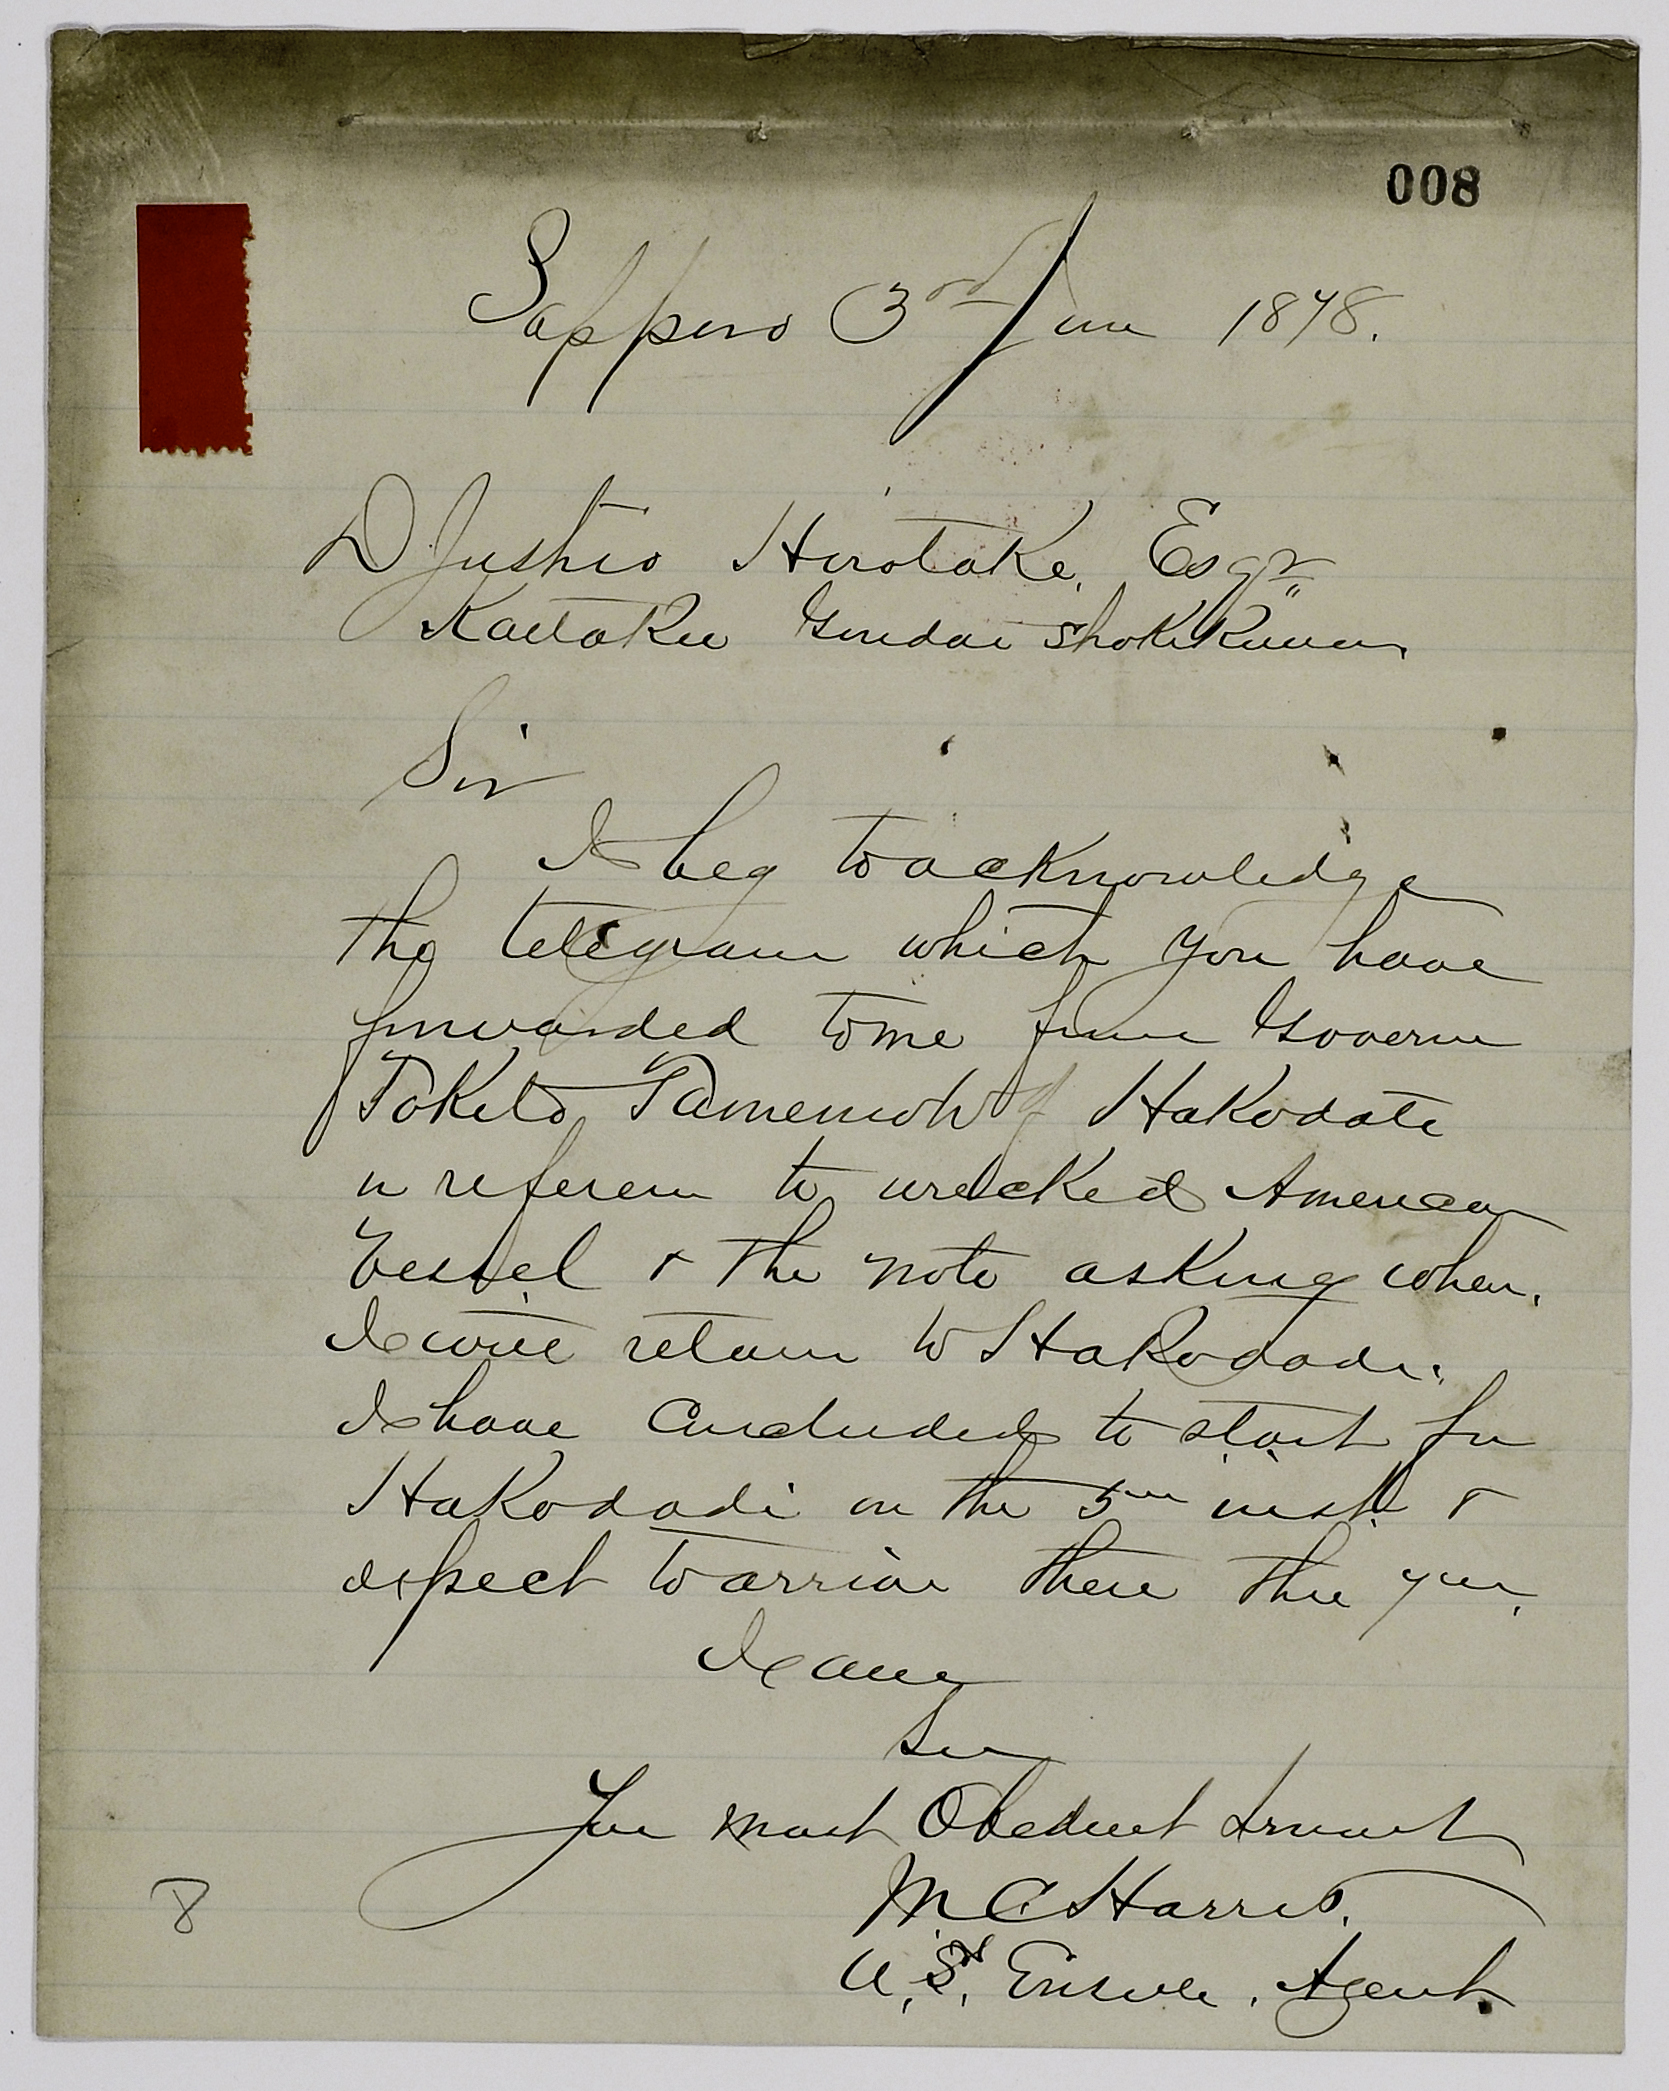 008
Sapporo 3rd June 1878.
D Jushio Hirotake, Esqr
Kaitaku Gondai Shokikuan.
Sir
I beg to acknowledge
the telegram which you have
forwarded to me from Governor
Tokito Tamemoto of Hakodate
in reference to wrecked American
Vessel & the note asking when
I will return to Hakodadi.
I have concluded to start for
Hakodadi on the 5th inst. &
expect to arrive there the 7th.
I am
Sir
Your most Obedient Servant
M. C. Harris.
U.S. Agent.
8